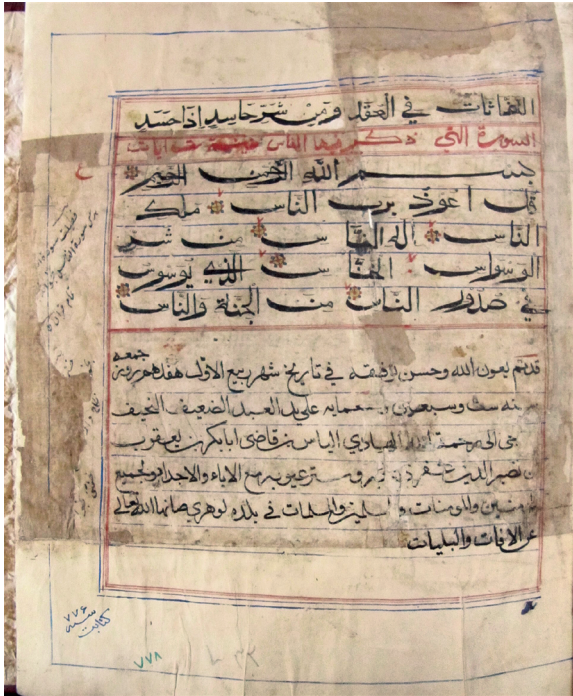 النفاثات في العقد ومن شر حاسد اذا حسد
السورة التي ذكر فيها الناس ايات
بسم الله الرحمن الرحيم
قل اعوذ برب الناس ملك
الناس اله الناس من شر
الوسواس الخناس الذي يوسوس
في صدور الناس من الجنة والناس
قد تم بعون الله وحسن توفيقه في تاريخ شهر ربيع الاول روز جمعه
سنه ست وسبعين و على يد العبد الضعيف النحيف
الى رحمة الله الهادي الياس بن قاضى ابابكر بن يعقوب
بن نصير الدين لجميع الاباء والاجداد ولجميع
المؤمنين والمومنات والمسلمين والمسلمات في بلده لوهري صانها الله تعالى
عن الافات والبليات
٧٧٦
سنه
كتابت
٧٧٨